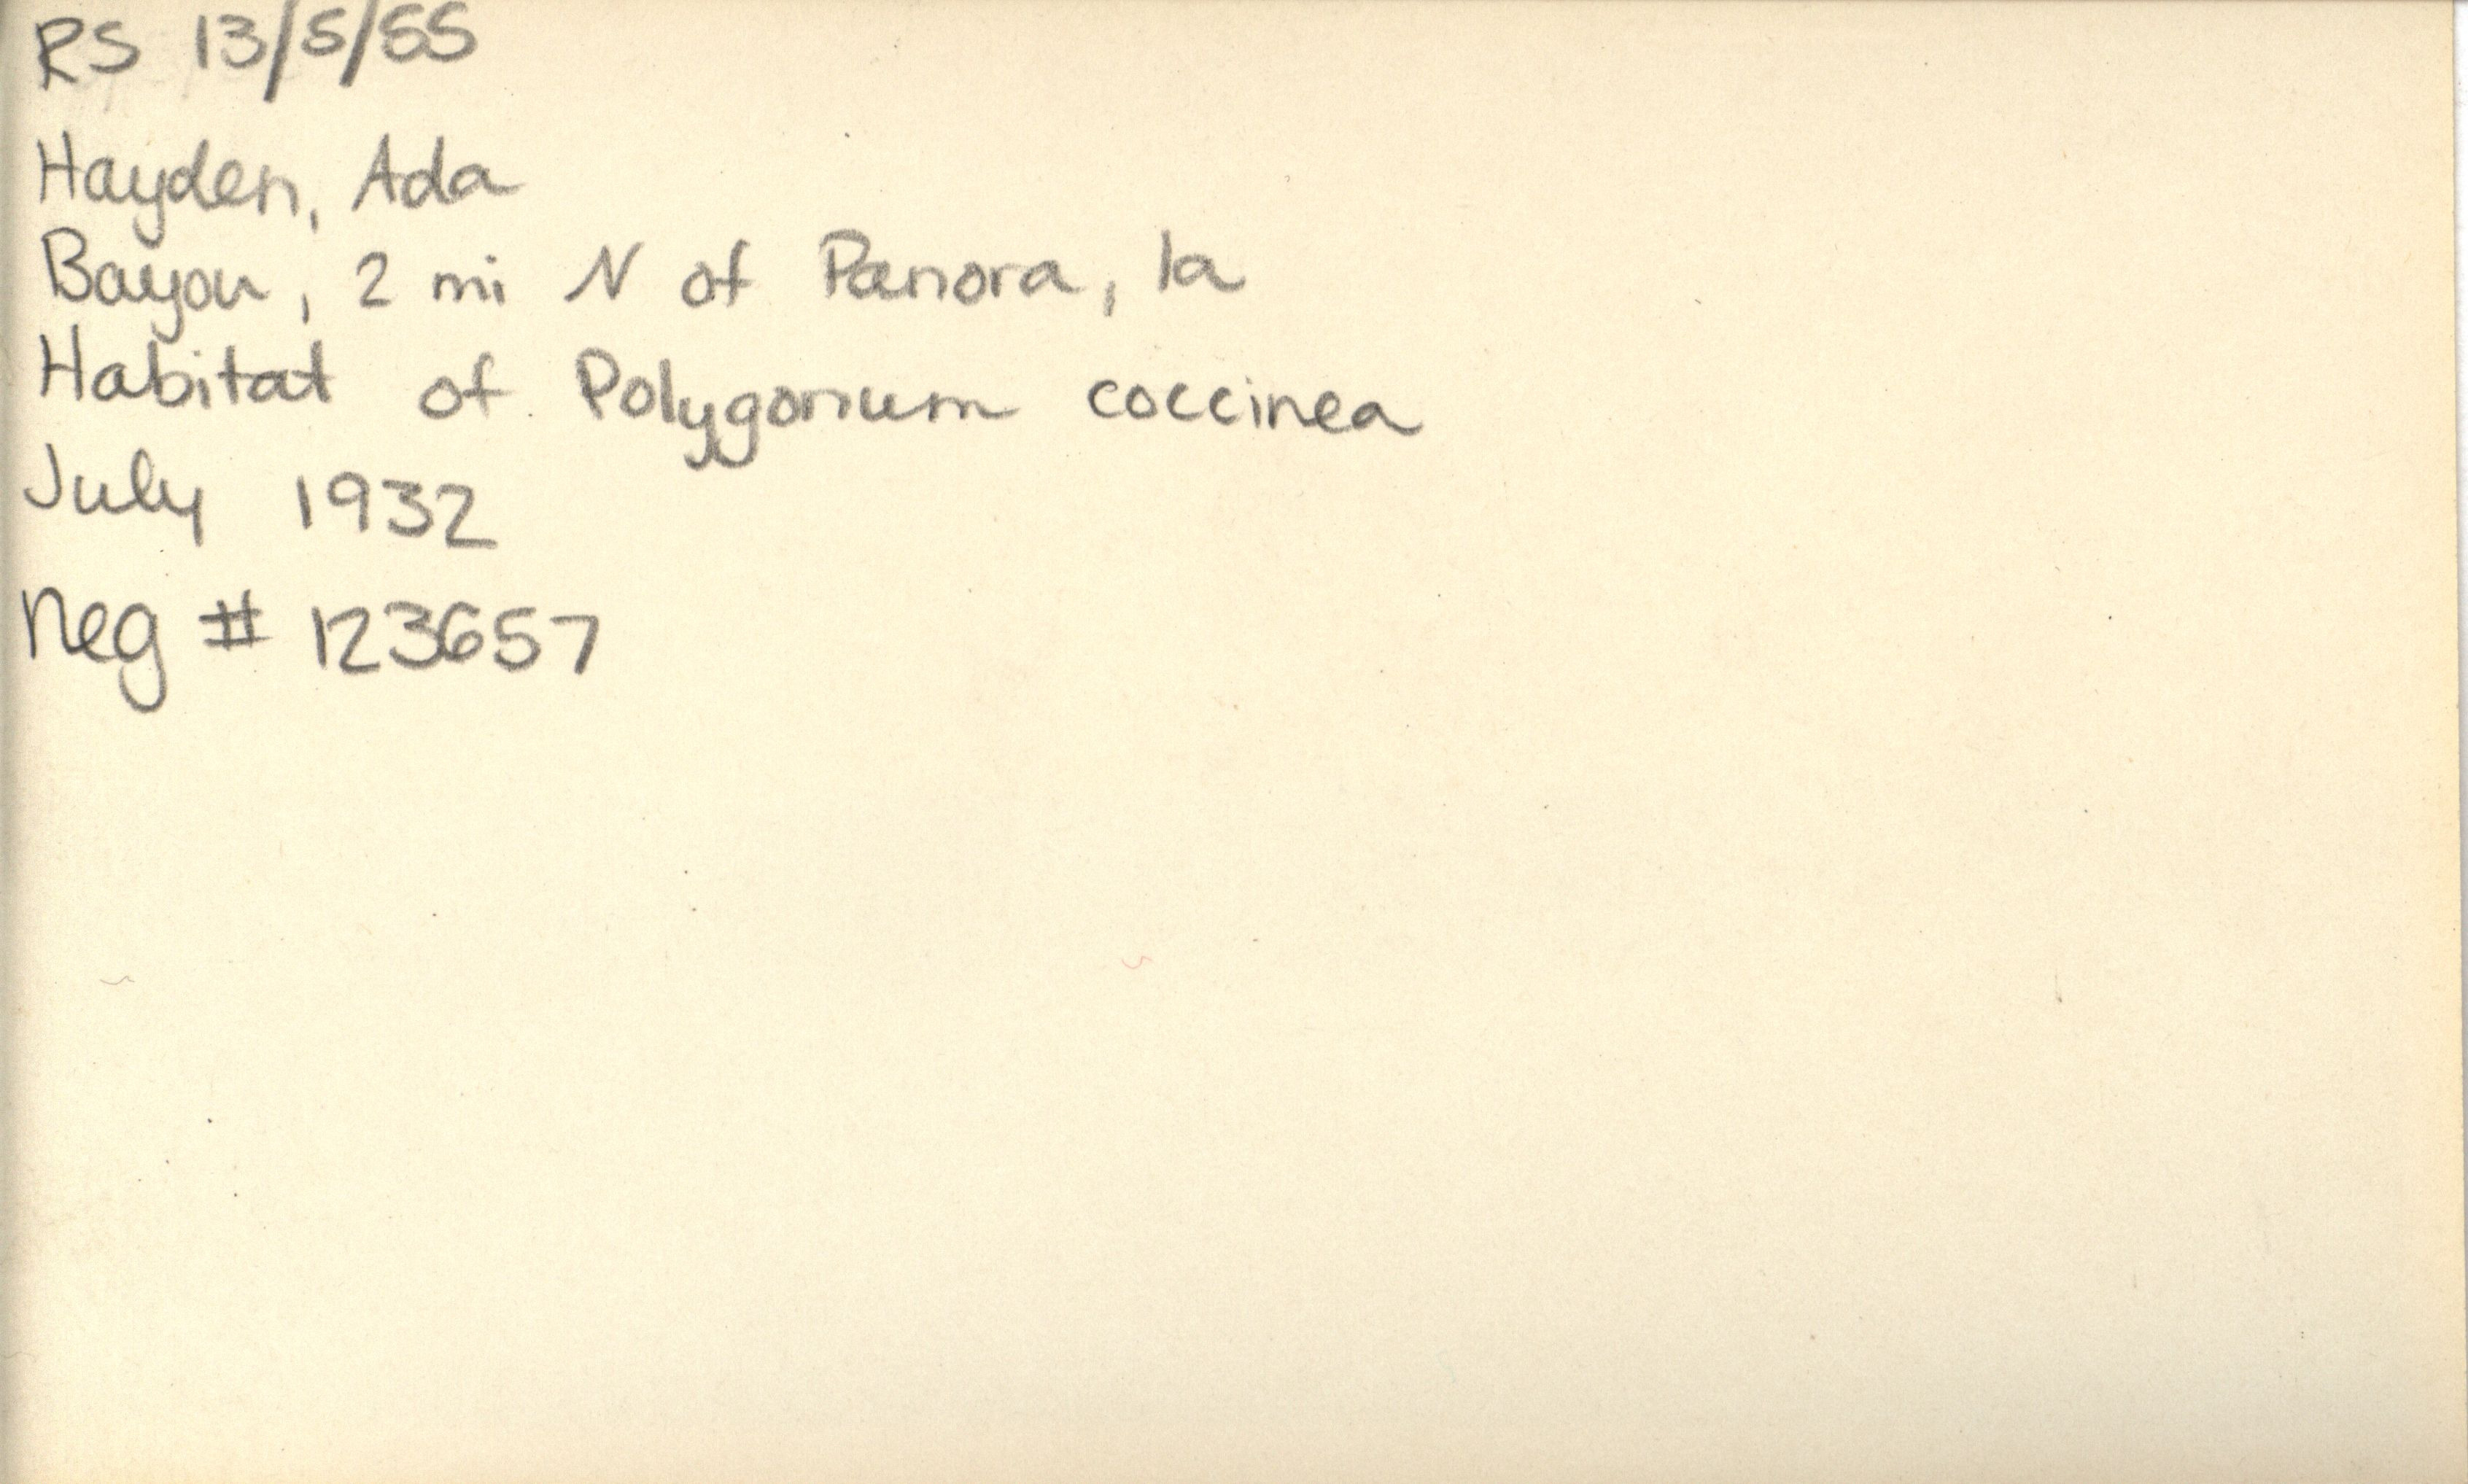 RS 13/5/55
Hayden, Ada
Bayou, 2 mi N of Panora, Ia
Habitat of Polygonium coccinea
July 1932
Neg # 123657